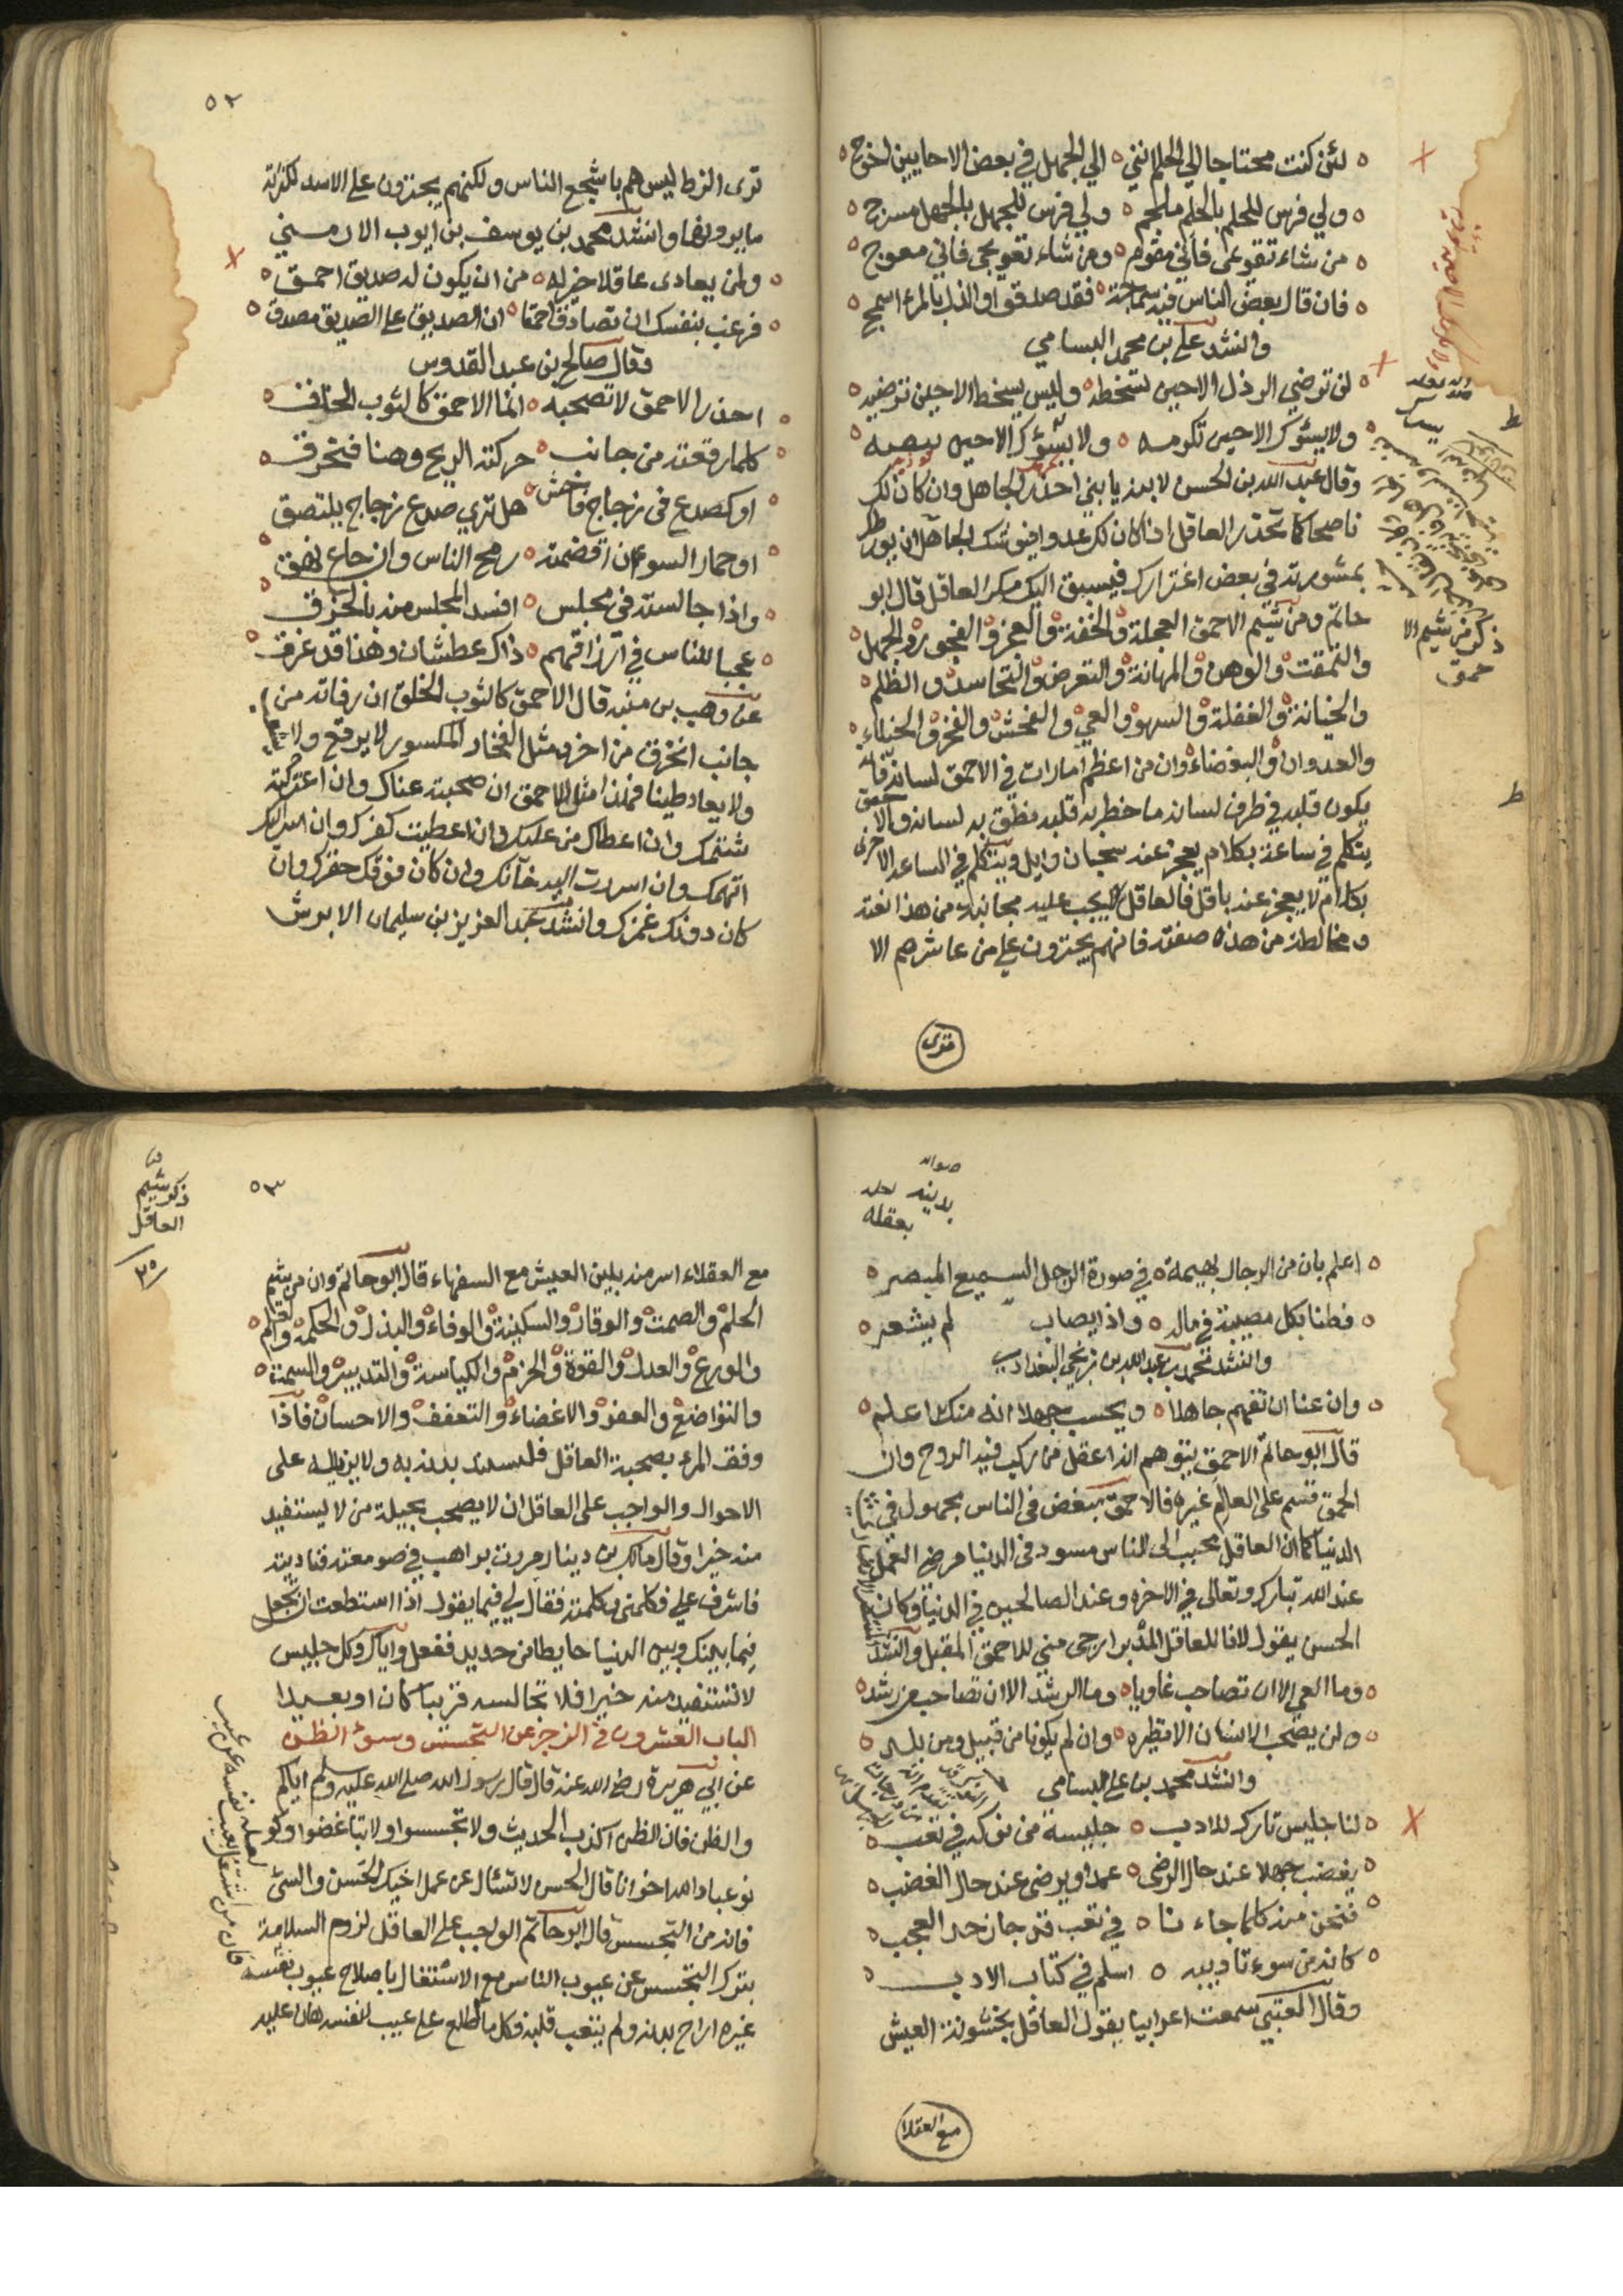 لئن كنت محتاجا الي الحلم انني ه الي الجهل في بعض الاحايين احوج
ولي فرس للحلم بالحلم ملجم ه ولي فرس للجهل بالجهل مسرج
من شاء تقويمي فاني مقوم ه ومن شاء تعويجي فاني معوج
فان قال بعض الناس فيه سماجة ه فقد صدقوا والذل بالمرء اسمج
وانشد علي بن محمد البسامي
لن ترضي الرذل الا حين تسخطه ه وليس يسخط الا حين ترضيه
ولا يسؤك الا حين تكرمه ه ولا يسؤك الا حين
وقال عبد الله بن الحسن لابنه يا بني احذر الجاهل وان كان لك
ناصحا كما تحذر العاقل اذا كان لك عدوا فيوشك الجاهل ان يورطك
بمشورته في بعض اغترارك فيسبق اليك مكر العاقل قال ابو
حاتم ومن شيم الاحمق العجلة والخفة والعجز والفجور والجهل
والمقت والوهن والمهانة والتعرض والتحاسد والظلم
والخيانة والغفلة والسهو والعي والفحش والفخر والخيلاء
والعدوان والبغضاء وان من اعظم امارات في الاحمق لسانه فانه
يكون قلبه في طرف لسانه ما خطر به قلبه نطق به لسانه والاحمق
يتكلم في ساعة بكلام يعجز عنه سحبان وايل ويتكلم في الساعة الاخرى
بكلام لا يعجز عنه باقل فالعاقل يجب عليه مجانبة من هذا نعته
ومخالطة من هذه صفته فانهم يجترون علي من عاشرهم الا
ذكر من شيم الا
حمق
ترى
٥٢
ترى الزط ليس هم باشجع الناس ولكنهم يجترون على الاسد لكثرة
ما يرونها وانشد محمد بن يوسف بن ايوب الارمني
ولمن يعادى عاقلا خير له ه من ان يكون له صديق احمق
فرغب بنفسك ان تصادق احمقا ه ان الصديق على الصديق مصدق
وقال صالح بن عبد القدوس
احذر الاحمق لا تصحبه ه انما الاحمق كالثوب الخلق
كلما رقعته من جانب ه حركته الريح وهنا فتخرق
او كصدع في زجاج فاحش ه هل ترى صدع زجاج يلتصق
او حمار السوء ان اقضمته ه رمح الناس وان جاع نهق
واذا جالسته في مجلس ه افسد المجلس منه بالخرق
عجبا للناس في ارزاقهم ه ذاك عطشان وهذا قد غرق
عن وهب بن منبه قال الاحمق كالثوب الخلق ان رفاته من
جانب انخرق من اخر ومثل الفخار المكسور لا يرقع ولا يشعب
ولا يعاد طينا فهذا مثل الاحمق ان صحبته عناك وان اعتزلته
شتمك وان اعطاك من عليك وان اعطيت كفرك وان اسر اليك
اتهمك وان اسررت اليه خانك وان كان فوقك حقرك وان
كان دونك غمزك وانشد عبد العزيز بن سليمان الابرش
بعقله
اعلم بان من الرجال بهيمة ه في صورة الرجل السميع المبصر
فطنا بكل مصيبة في ماله ه واذا يصاب لم يشعر
وانشد محمد بن عبد الله بن زنجي البغدادي
وان عنا ان تفهم جاهلا ه ويحسب جهلا انه منك اعلم
قال ابو حاتم الاحمق يتوهم انه اعقل من ركب فيه الروح وان
الحمق قسم على العالم غيره فالاحمق مبغض في الناس مجهول في
الدنيا كما ان العاقل محبب الى الناس مسود في الدنيا مرضي العمل
عند الله تبارك وتعالى في الاخرة وعند الصالحين في الدنيا وكان
الحسن يقول لانا للعاقل المدبر ارجى مني للاحمق المقبل وانشد
وما العي الا ان تصاحب غاويا ه وما الرشد الا ان تصاحب من رشد
ولن يصحب الانسان الا نظيره ه وان لم يكونا من قبيل ومن بلد
وانشد محمد بن علي البسامي
لنا جليس تارك للادب ه جليسه من نوكه في تعب
يغضب جهلا عند حال الرضى ه عمدا ويرضى عند حال الغضب
فنحن منه كلما جاءنا ه في تعب قد جاز حد العجب
كانه من سوء تاديبه ه اسلم في كتاب الادب
وقال العتبي سمعت اعرابيا يقول العاقل بخشونة العيش
مع العقلا
٥٣
ذكر شيم
العاقل
مع العقلاء اسر منه بلين العيش مع السفهاء قال ابو حاتم وان من شيم
الحلم والصمت والوقار والسكينة والوفاء والبذل والحكمة والعلم
والورع والعدل والقوة والحزم والكياسة والتدبير والسمت
والتواضع والعفو والاغضاء والتعفف والاحسان فاذا
وفق المرء بصحبة العاقل فليشد يديه به ولا يزايله على
الاحوال والواجب على العاقل ان لا يصحب بحيلة من لا يستفيد
منه خيرا وقال مالك بن دينار مررت براهب في صومعته فناديته
فاشرف علي فكلمني وكلمته فقال لي فيما يقول اذا استطعت ان تجعل
فيما بينك وبين الدنيا حايطا من حديد فافعل واياك وكل جليس
لا تستفيد منه خيرا فلا تجالسه قريبا كان او بعيدا
الباب العشرون في الزجر عن التجسس وسوء الظن
عن ابي هريرة رضي الله عنه قال قال رسول الله صلى الله عليه وسلم اياكم
والظن فان الظن اكذب الحديث ولا تجسسوا ولا تباغضوا وكو
نوا عباد الله اخوانا قال الحسن لا تسأل عن عمل اخيك الحسن والسئ
فانه من التجسس قال ابو حاتم الواجب على العاقل لزوم السلامة
بترك التجسس عن عيوب الناس مع الاشتغال باصلاح عيوب نفسه
غيره اراح بدنه ولم يتعب قلبه فكل ما اطلع على عيب لنفسه هان عليه
فان من اشتغل بعيب نفسه عن عيب